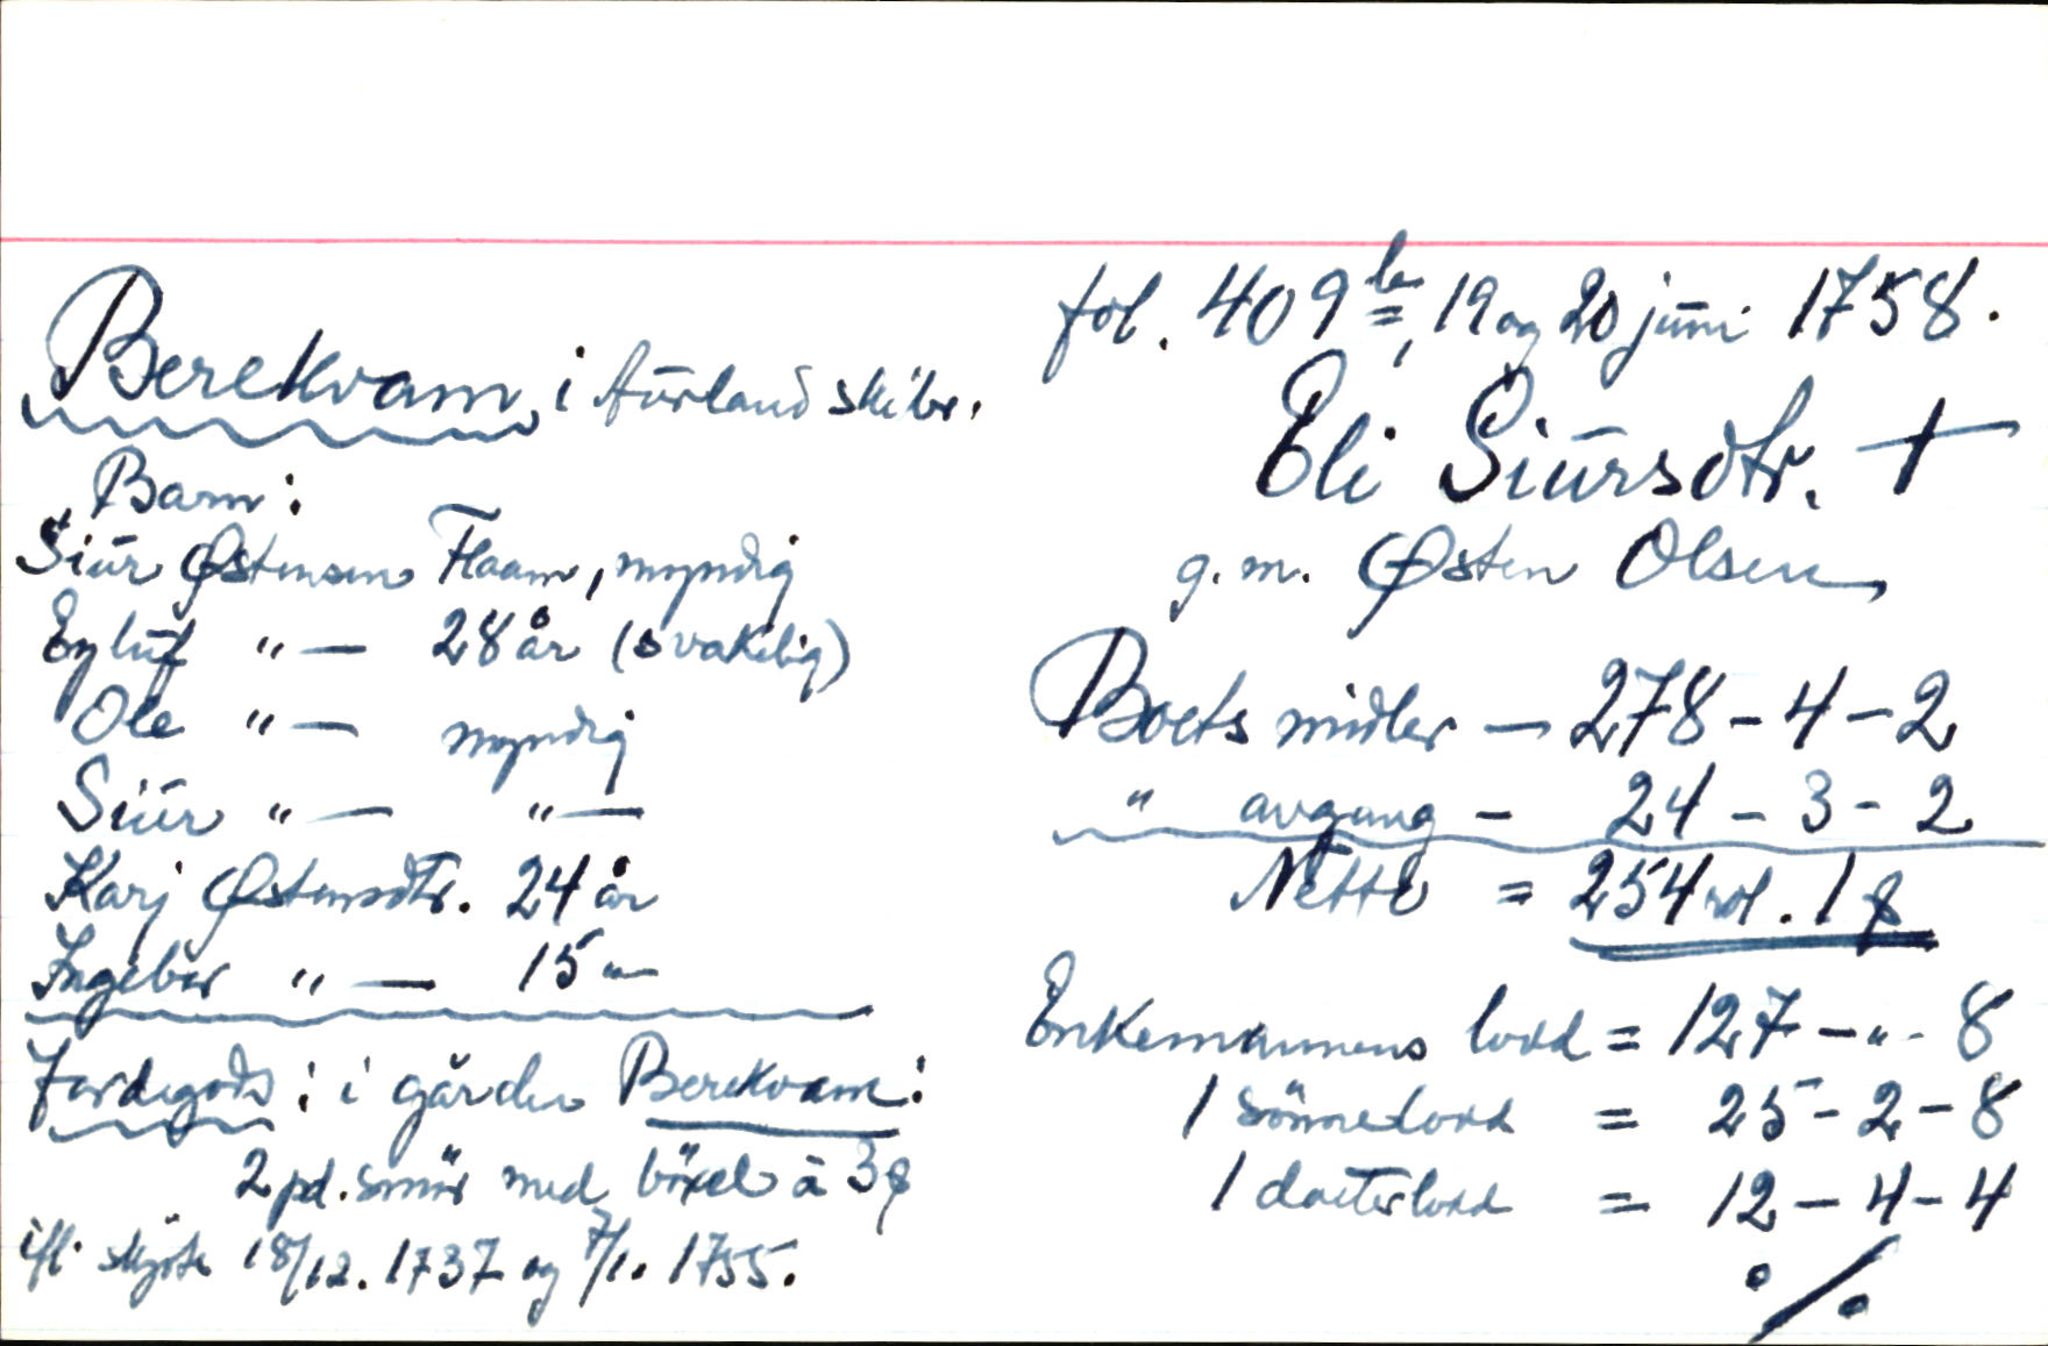 fol. 409 b, 19 og 20 juni 1758.
Berekvam, i Aurland skibr.
Eli Siursdtr. †
g.m. Østen Olsen
Barn:
Siur Østensen Flaam, myndig
Eyluf " — 28 år (svakelig)
Ole " — myndig
Siur " — " —
Karj Østensdtr. 24 år
Ingebor " — 15 "
Jordegods: i gården Berekvam:
2 pd. smör med böxel à 3
ifl. skjöte 18/12. 1737 og 7/1. 1755.
Boets midler — 278 - 4 - 2
" avgang - 24 - 3 - 2
Netto = 254 rdl. 1
Enkemannens lodd = 127 - " - 8
1 sönnelodd = 25 - 2 - 8
1 dotterlodd = 12 - 4 - 4
%